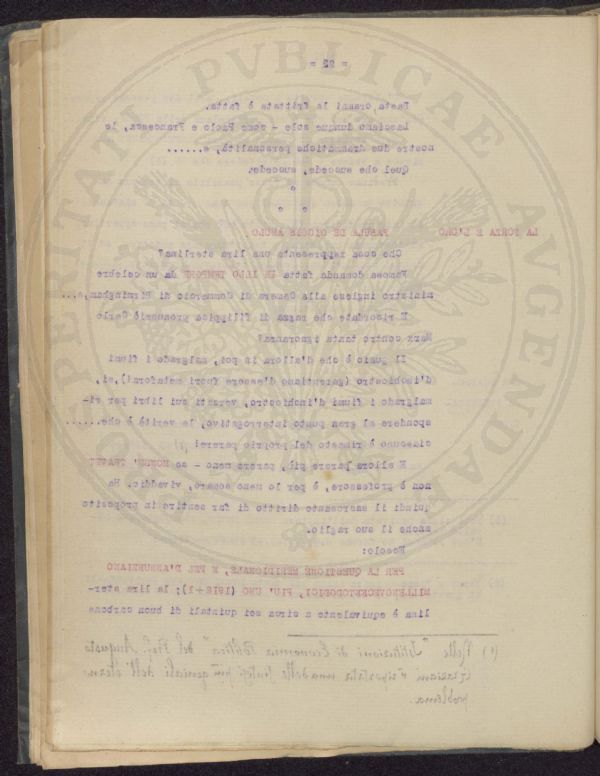 = 92 =
Basta oranni la frittata è fatta.
Lasciamo dunque sole - come Paolo e Francesca, le
nostre due drammatiche personalità, e......
Quel che succede, succede.
o
o o
LA FORZA E L'ORO FABULE DE GIOSUE ABULO
Che cosa rappresenta una lira sterlina?
Famosa domanda fatta IN ILLO TEMPORE da un celebre
ministro inglese alla Camera di Commercio di Birmingham,e...
E ricordate che razza di filippica pronunciò Carlo
Marx contro tanta ignoranza?
Il guaio è che d'allora in poi, malgrado i fiumi
d'inchiostro (garentiamo d'essere fuori metafora!),si,
malgrado i fiumi d'inchiostro, versati sui libri per ri-
spondere al gran punto interrogativo, la verità è che......
ciascuno è rimasto del proprio parere!
E allora parere più, parere meno - se MONSU' TRAVET
non è professore, è per lo meno somaro, vivaddio. Ha
quindi il sacrosanto diritto di far sentire in proposito
anche il suo raglio.
Eccolo:
PER LA QUESTIONE MERIDIONALE, E PEL D'ANNUNZIANO
MILLENOVECENTODODICI, PIU' UNO (1912+1); la lira ster-
lina è equivalente a circa sei quintali di buon carbone
(1) Nelle "Istituzioni di Economia Politica" del Prof. Augusto
Graziani è riportata una delle sintesi più geniali dell'eterno
problema.
PROSPERITATI PVBLICAE AVGENDAE